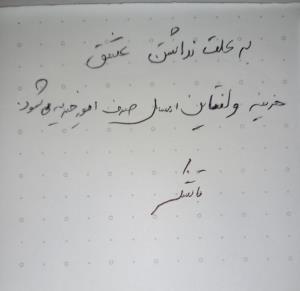 به علت نداشتن عشق
هزینه ولنتاین امسال صرف امور خیریه می‌شود.
با تشکر